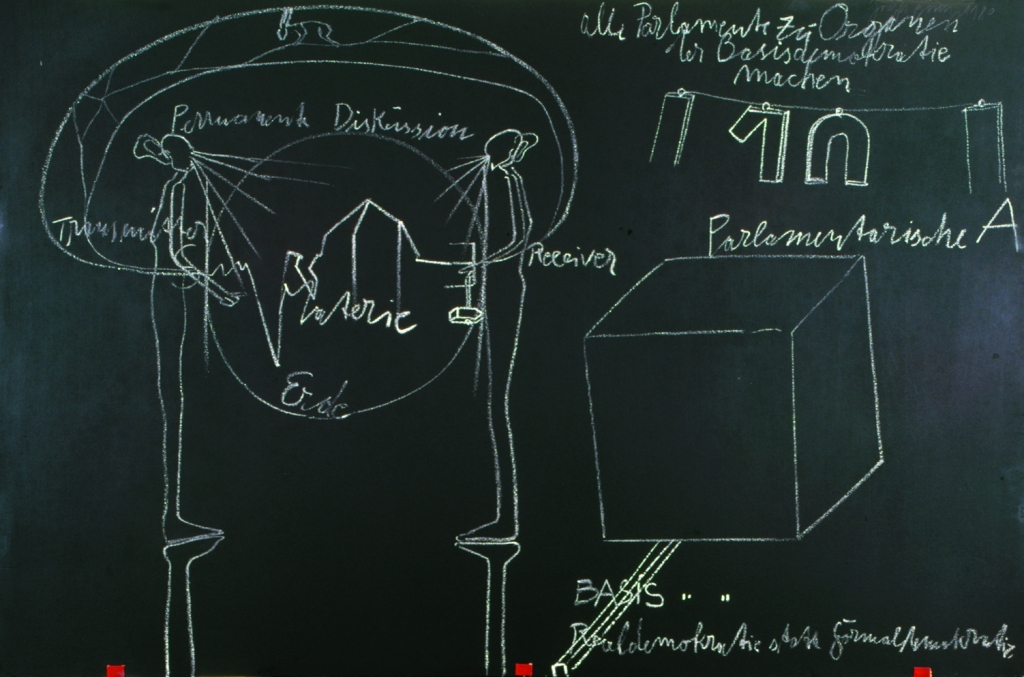 alle Parlamente zu Organen
der Basisdemokratie
machen
Permanente Diskussion
Transmitter
Receiver
Materie
Erde
Parlamentarische A
BASIS " "
Realdemokratie statt Formaldemokratie